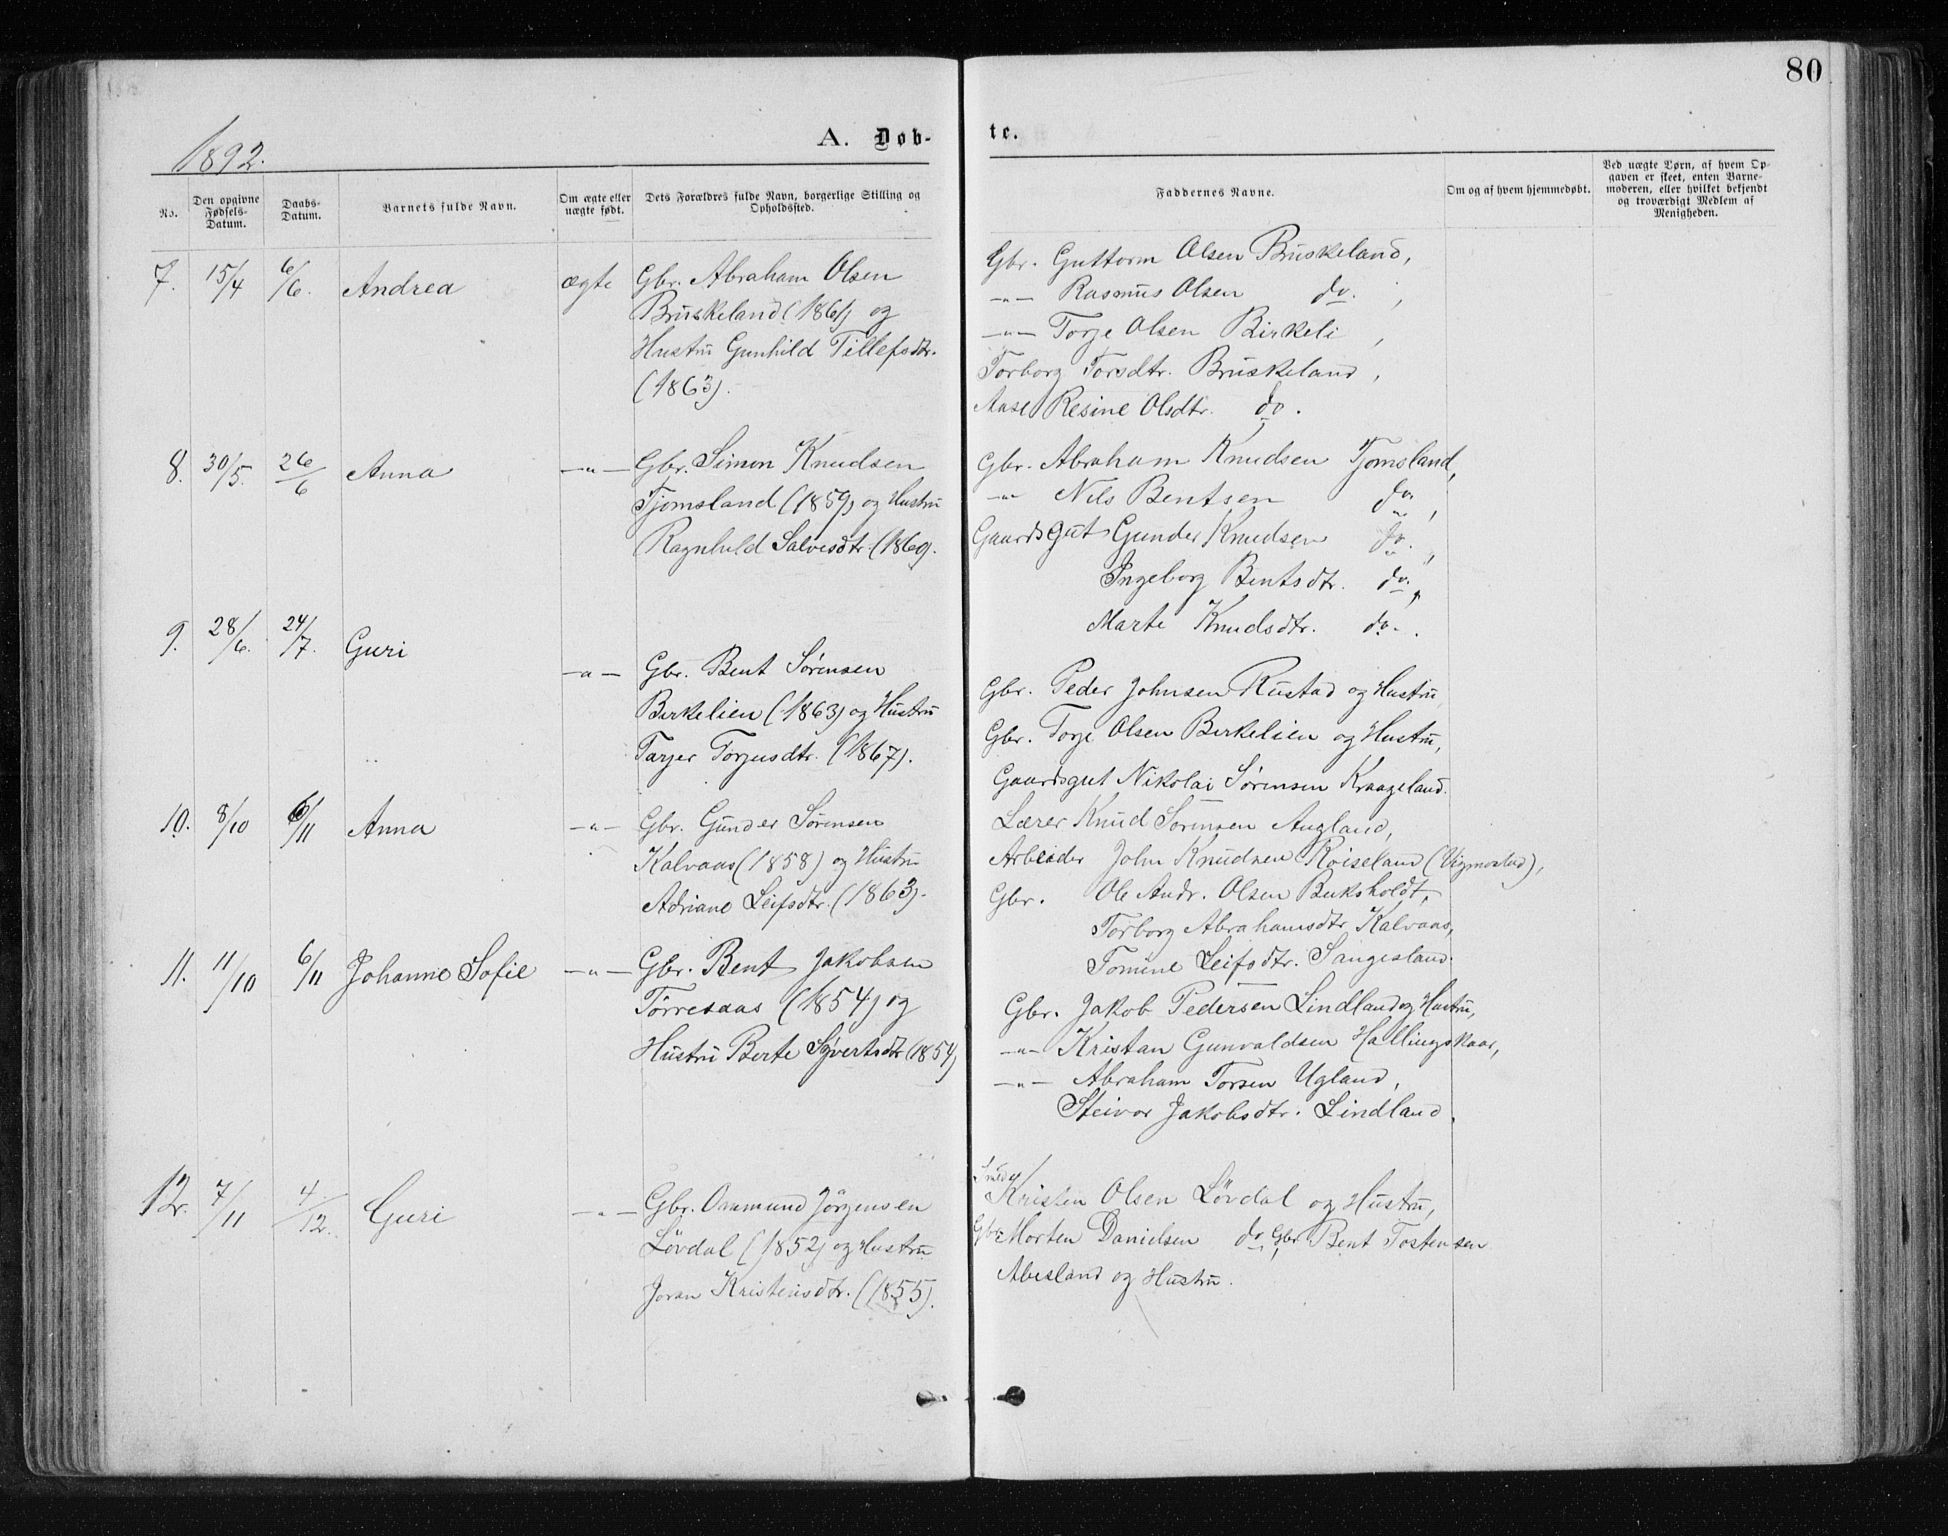 80
1892.
A. Døb-
te.
No.
Den opgivne Fødsels-Datum.
Daabs-Datum.
Barnets fulde Navn.
Om ægte eller uægte født.
Dets Forældres fulde Navn, borgerlige Stilling og Opholdssted.
Faddernes Navne.
Om og af hvem hjemmedøbt.
Ved uægte Børn, af hvem Opgaven er skeet, enten Barnemoderen, eller hvilket bekjendt og troværdigt Medlem af Menigheden.
7. 15/4 6/6. Andrea ægte Gbr. Abraham Olsen
Bruskeland (1861) og
Hustru Gunhild Tillefsdtr.
(1863).
Gbr. Guttorm Olsen Bruskeland,
—"— Rasmus Olsen do.,
—"— Torje Olsen Birkeli,
Torborg Torsdtr. Bruskeland,
Aase Resine Olsdtr. do.
8. 30/5. 26/6 Anna —"— Gbr. Simon Knudsen
Tjomsland (1859) og Hustru
Ragnhild Salvesdtr. (1860).
Gbr. Abraham Knudsen Tjomsland,
—"— Nils Bentsen do.,
Gaardsgut Gunder Knudsen do.,
Ingeborg Bentsdtr. do.,
Marte Knudsdtr. do.
9. 28/6. 24/7. Guri
—"— Gbr. Bent Sørensen
Birkelien (1863) og Hustru
Tarjer Torjusdtr. (1867).
Gbr. Peder Johnsen Rustad og Hustru,
Gbr. Torje Olsen Birkelien og Hustru,
Gaardsgut Nikolai Sørensen Kraageland.
10. 8/10 6/11 Anna —"— Gbr. Gunder Sørensen
Kalvaas (1858) og Hustru
Adriane Leifsdtr. (1863).
Lærer Knud Sørensen Augland,
Arbeider John Knudsen Røiseland (Vigmostad),
Gbr. Ole Andr. Olsen Buksholdt,
Torborg Abrahamsdtr. Kalvaas,
Tomine Leifsdtr. Sangesland.
11. 11/10 6/11 Johanne Sofie —"— Gbr. Bent Jakobsen
Tørresaas (1854) og
Hustru Berte Syvertsdtr (1854)
Gbr. Jakob Pedersen Lindland og Hustru,
—"— Kristan Gunvaldsen Hallingskaar,
—"— Abraham Torsen Ugland,
Steivor Jakobsdtr. Lindland.
12. 7/11 4/12. Guri —"— Gbr. Ommund Jörgensen
Lövdal (1852) og Hustru
Joran Kristensdtr. (1855).
Kristen Olsen Lövdal og Hustru,
Gbr. Morten Danielsen do, Gbr. Bent Tostensen
Abesland og Hustru.